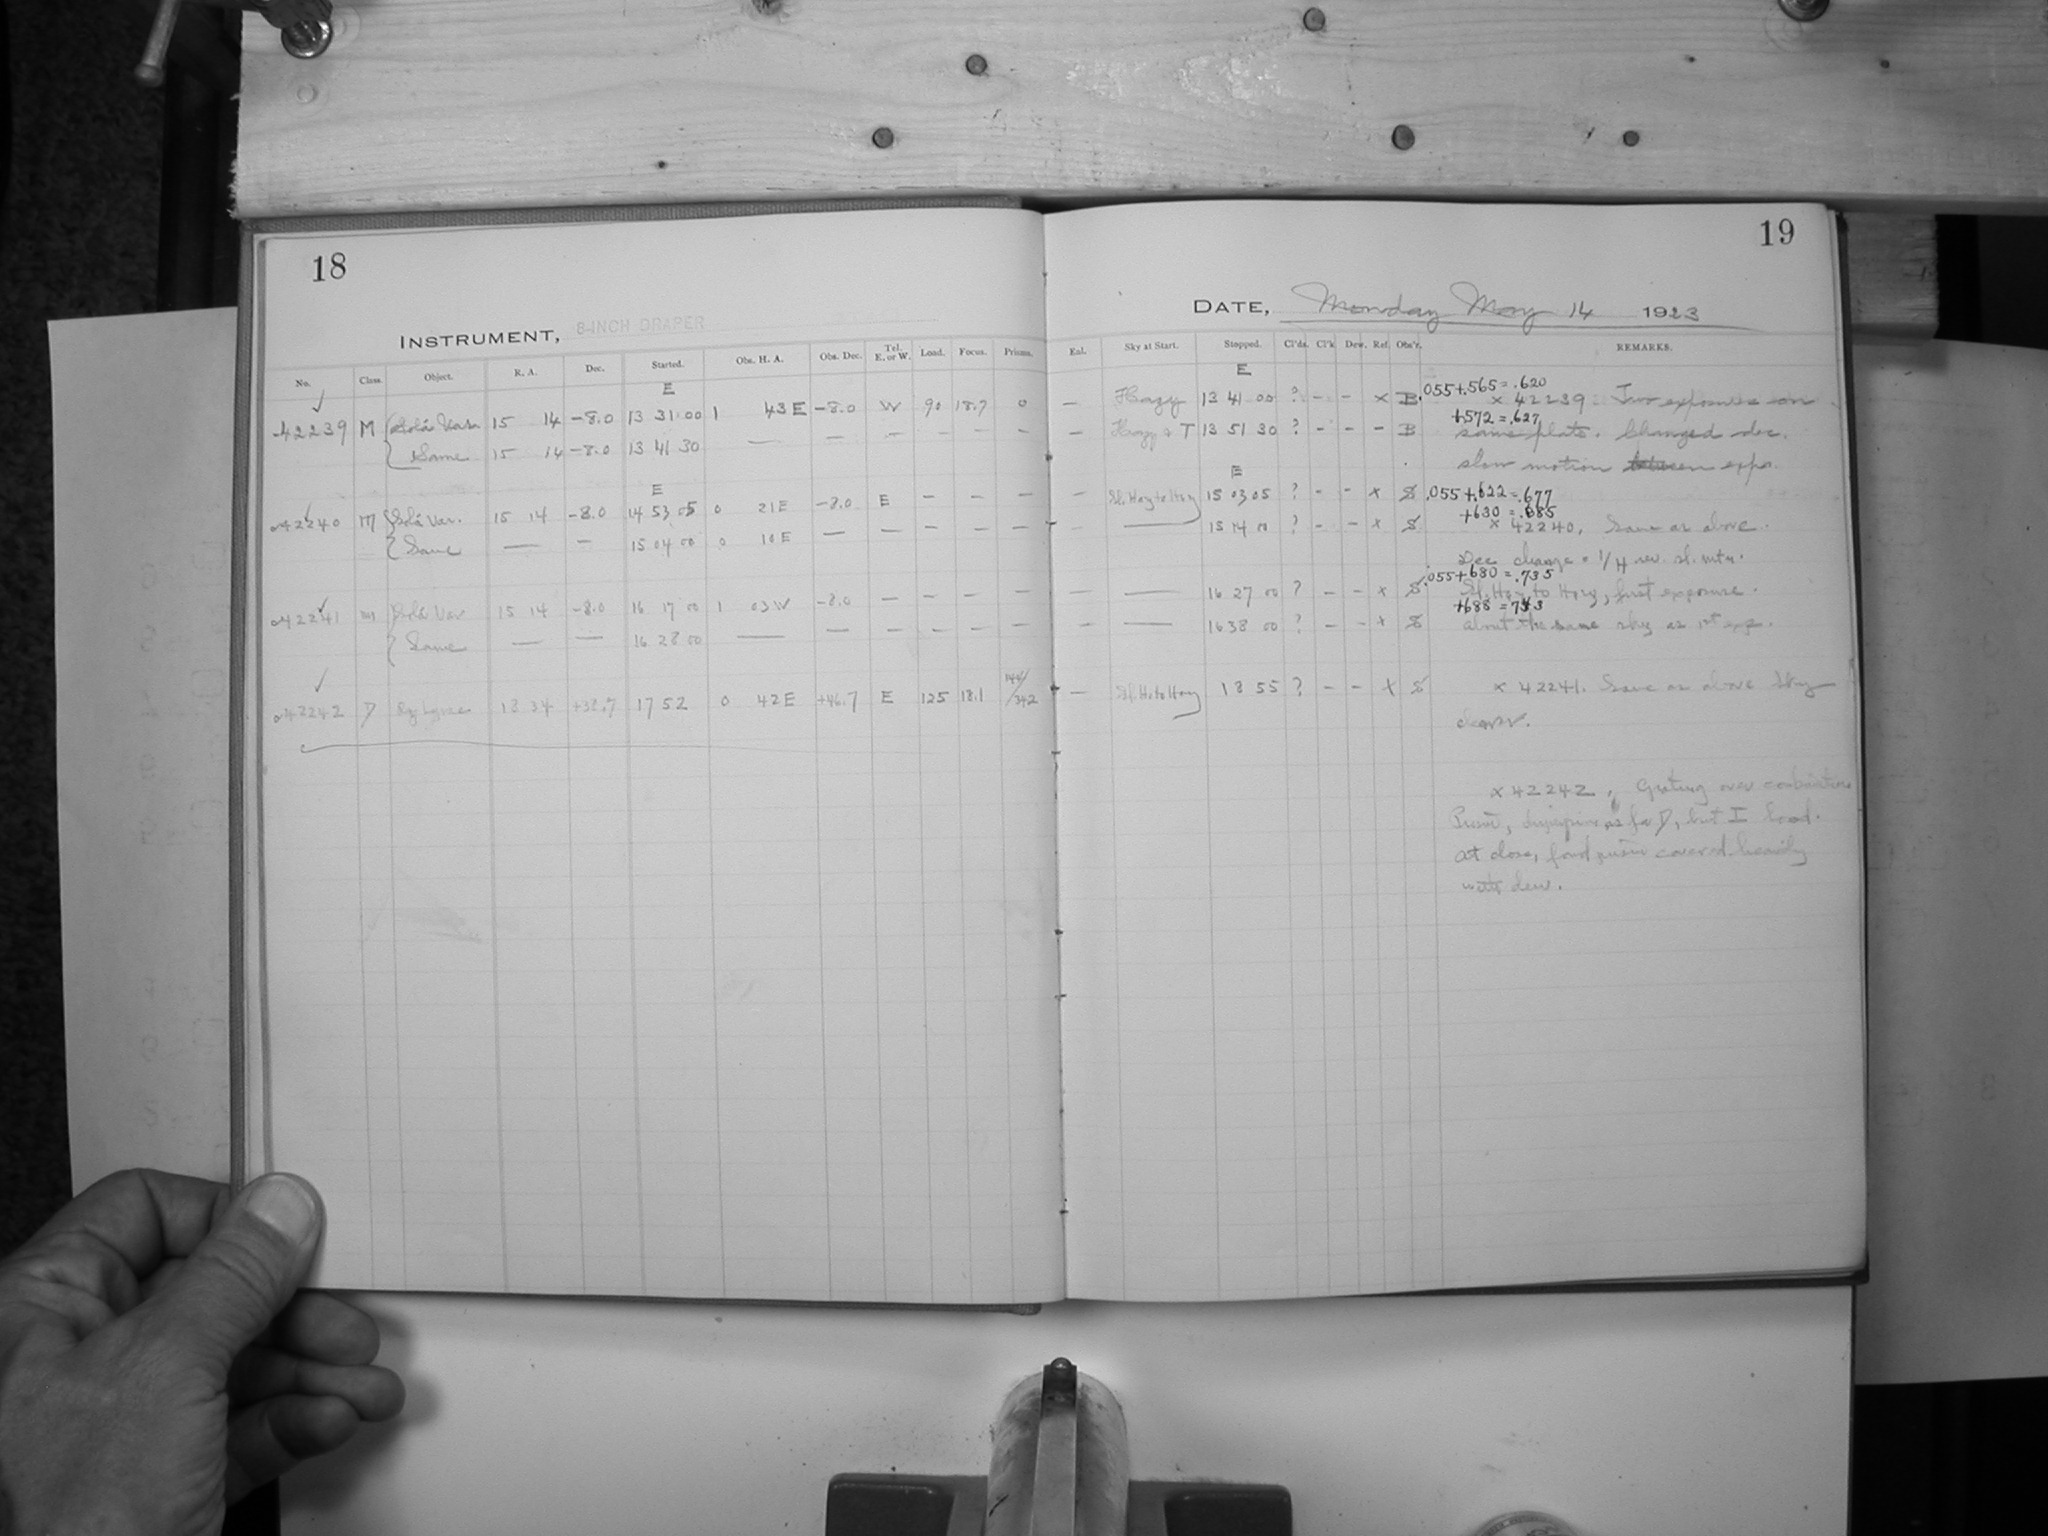 18
INSTRUMENT, 8-INCH DRAPER
No. Class. Object. R. A. Dec. Started. Obs. H. A. Obs. Dec. Tel. E. or W. Load. Focus. Prisms.
E
42239 M Var. 15 14 -8.0 13 31 00 1 43 E -8.0 W 90 18.7 0
Same 15 14 -8.0 13 41 30 — — — — — —
E
42240 M Var. 15 14 -8.0 14 53 05 0 21 E -8.0 E - - -
Same — — 15 04 00 0 10 E — — — — —
42241 m Var 15 14 -8.0 16 17 00 1 03 W -8.0 — — — —
Same — — 16 28 00 — — — — — —
42242 D Lyrae 18 34 +38.7 17 52 0 42 E +46.7 E 125 18.1 /342
19
DATE, Monday May 14 1923
Exl. Sky at Start. Stopped. Cl'ds. Cl'k Dew. Ref. Obs'r. REMARKS.
E
— Hazy 13 41 00 ? - - x B .055+.565=.620
x 42239. Two exposures on
— Hazy & T 13 51 30 ? - - - B +572=.627
same plate. Changed dec.
slow motion between expo.
E
— Sl. Hazy to Hazy 15 03 05 ? - - x S .055+.622=.677
— — 15 14 00 ? - - x S +630=.685
x 42240, Same as above.
Dec change = 1/4 rev. sl. mtn.
— — 16 27 00 ? - - x S .055+680=.735
Sl. Hazy to Hazy, first exposure.
— — 16 38 00 ? - - x S +688=743
about the same sky as 1st exp.
— Sl. H. to Hazy 18 55 ? - - x S x 42241. Same as above Sky
clearer.
x 42242, Grating over combination
Prism, as for D, but I load.
At close, found prism covered heavily
with dew.